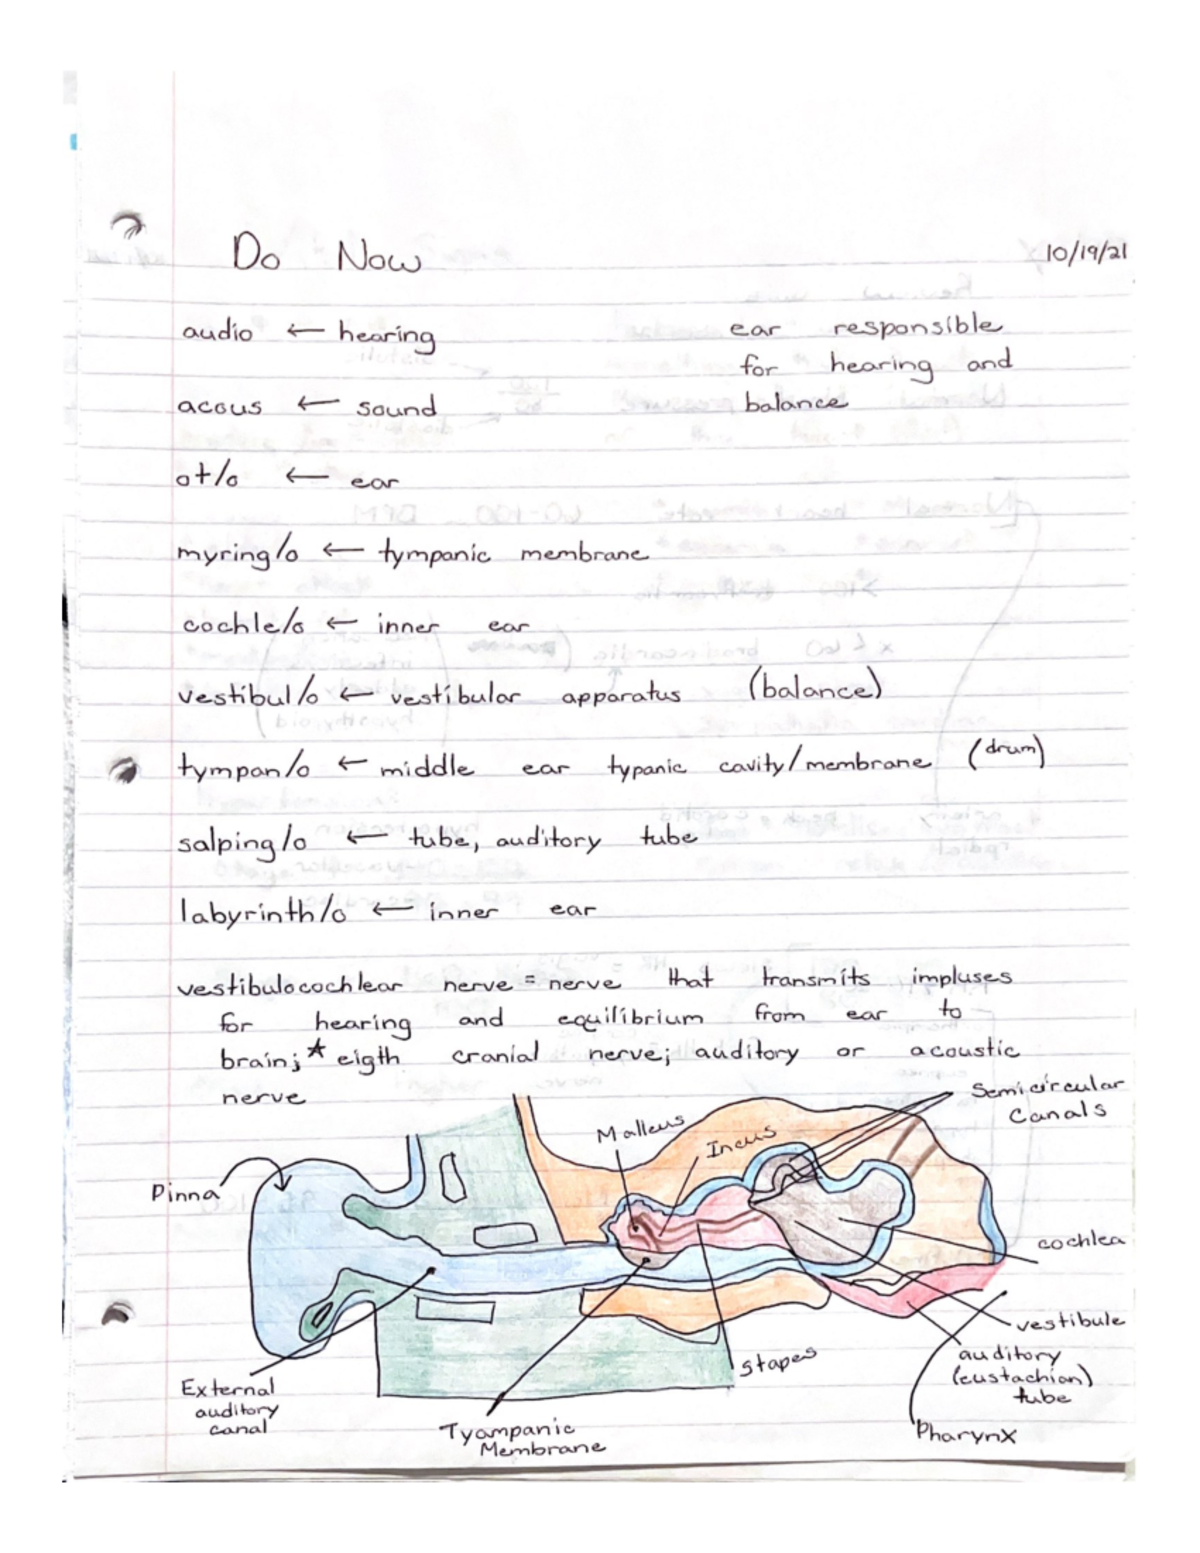 Do Now
10/19/21
audio ← hearing
ear responsible
for hearing and
balance
acous ← sound
ot/o ← ear
myring/o ← tympanic membrane
cochle/o ← inner ear
vestibul/o ← vestibular apparatus (balance)
tympan/o ← middle ear typanic cavity/membrane (drum)
salping/o ← tube, auditory tube
labyrinth/o ← inner ear
vestibulocochlear nerve = nerve that transmits impluses
for hearing and equilibrium from ear to
brain; * eigth cranial nerve; auditory or acoustic
nerve
Semicircular
Canals
Malleus
Incus
Pinna
cochlea
vestibule
auditory
(eustachian)
tube
stapes
External
auditory
canal
Tyompanic
Membrane
Pharynx